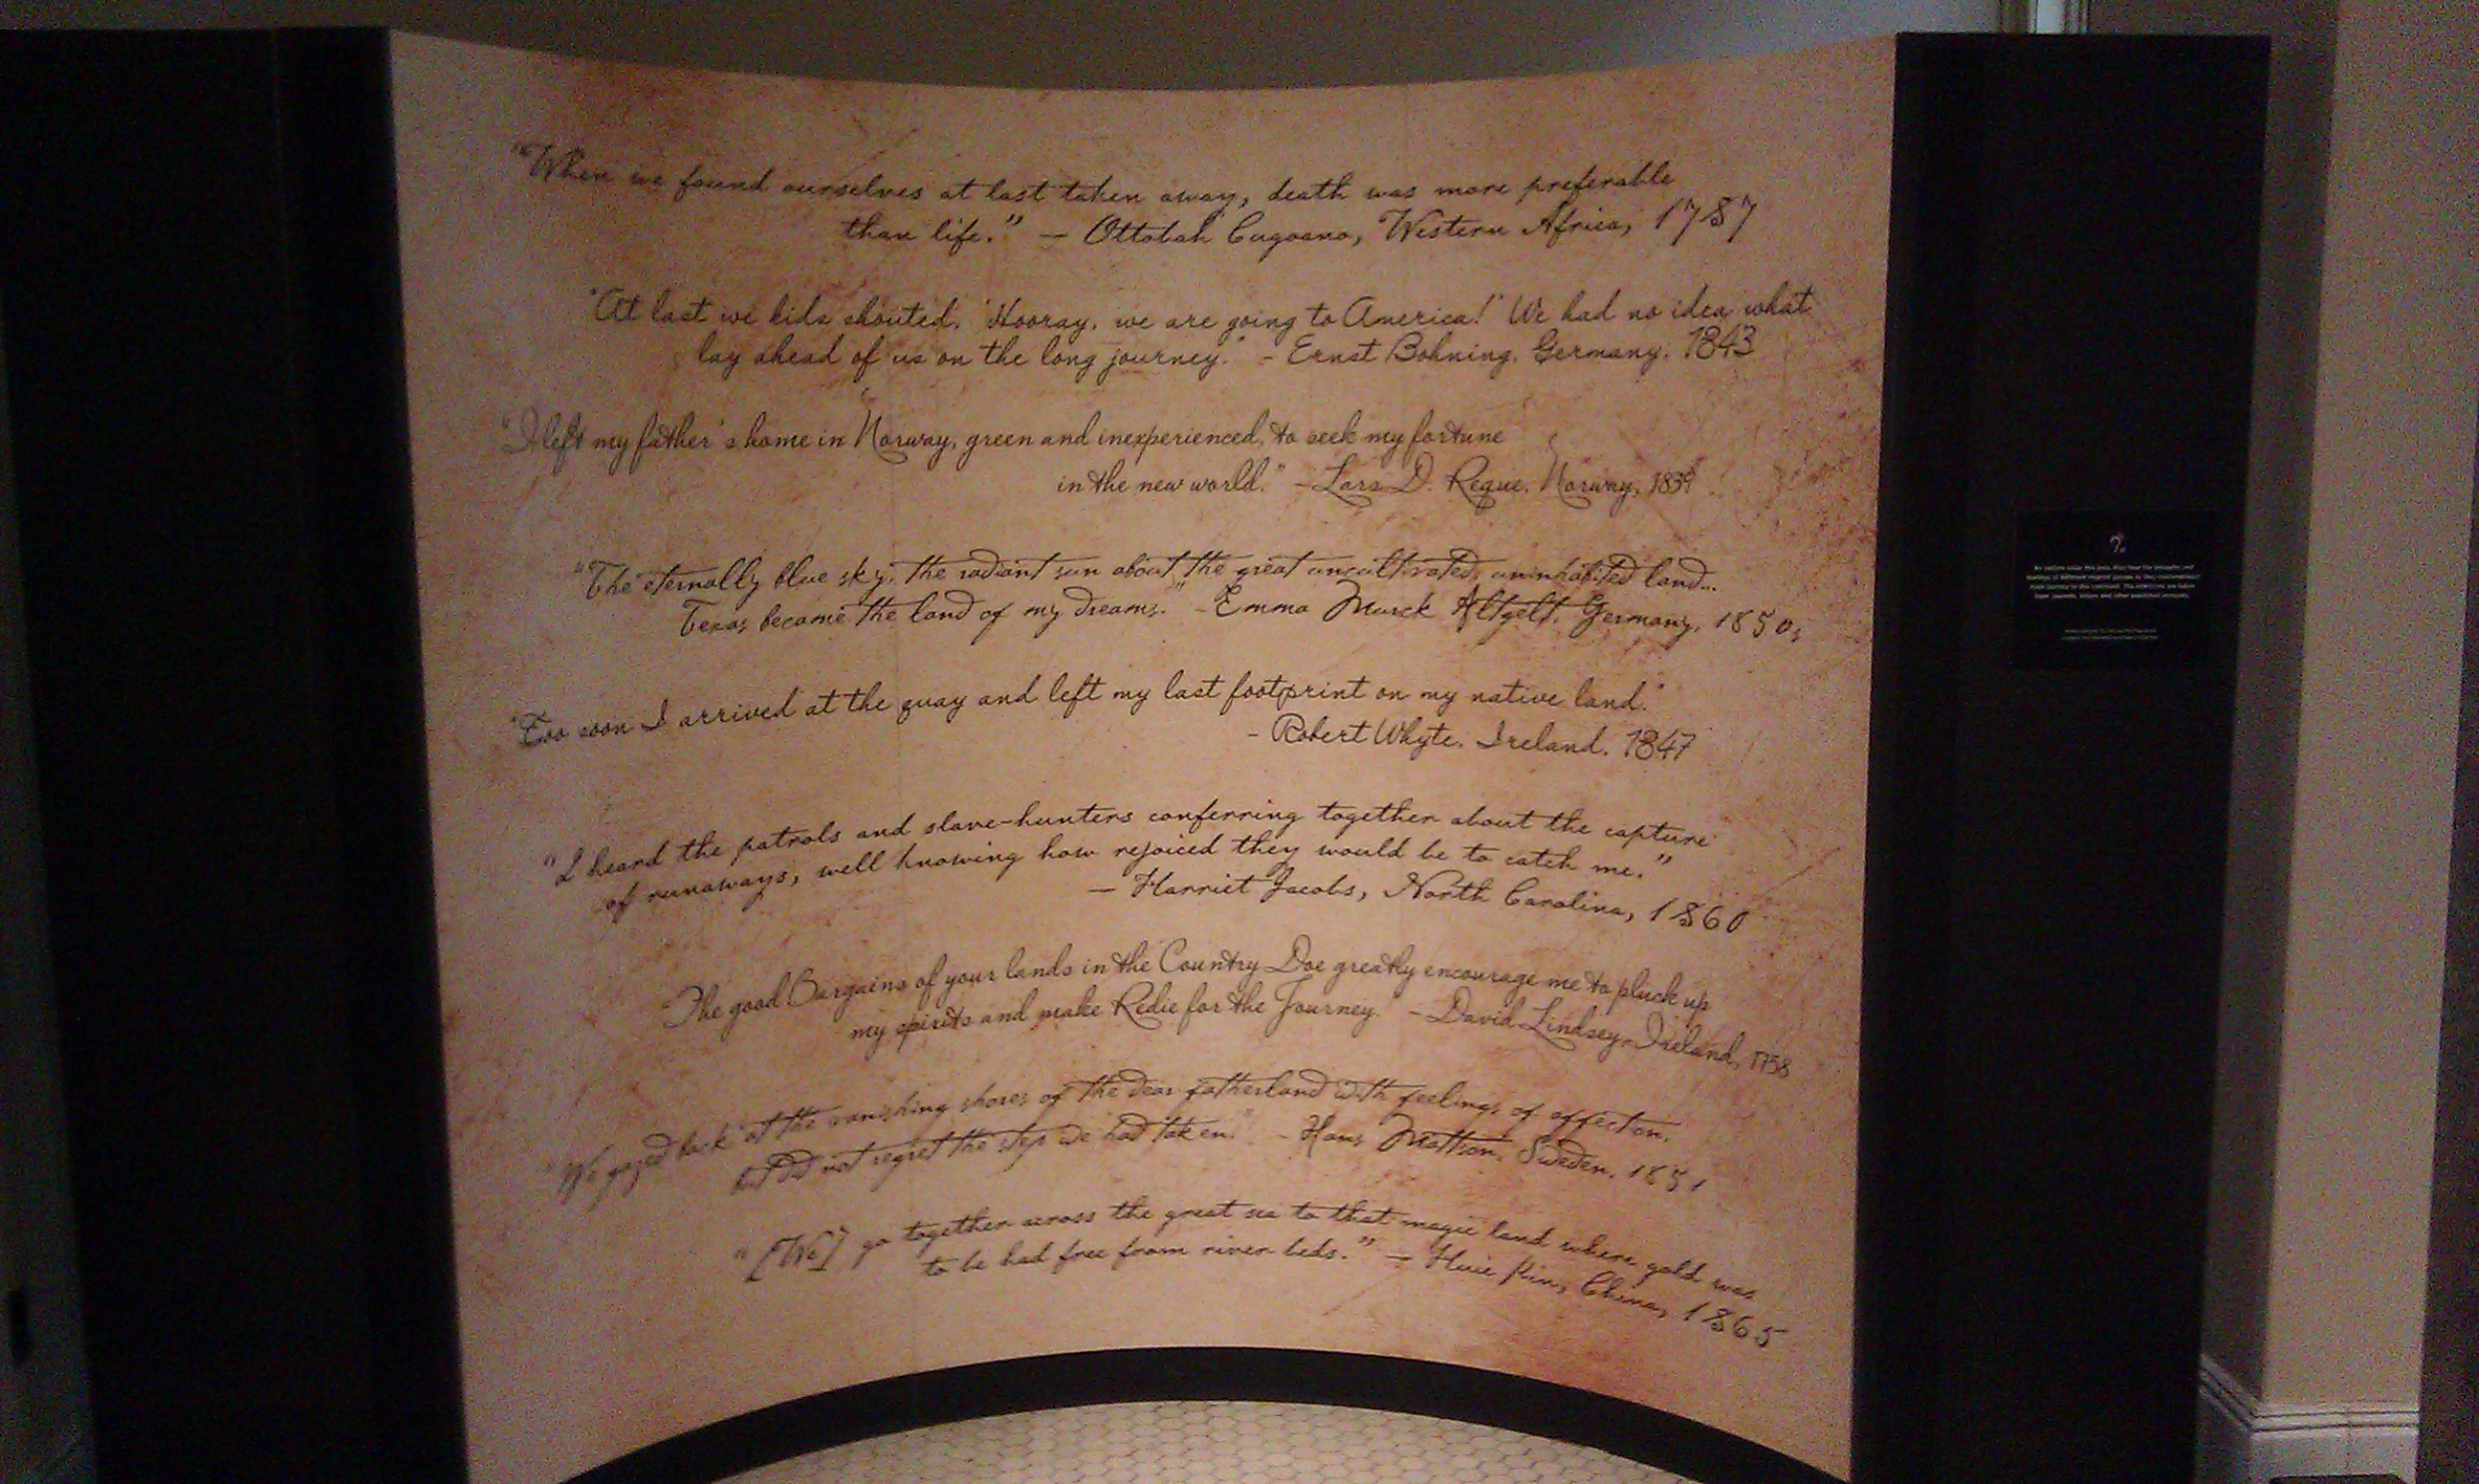 "When we found ourselves at last taken away, death was more preferable
than life." — Ottobah Cugoano, Western Africa, 1787
"At last we kids shouted, 'Hooray, we are going to America!' We had no idea what
lay ahead of us on the long journey." - Ernst Bohning, Germany, 1843
"I left my father's home in Norway, green and inexperienced, to seek my fortune
in the new world." - Lars D. Reque, Norway, 1839
"The eternally blue sky, the radiant sun about the great uncultivated, uninhabited land...
Texas became the land of my dreams." - Emma Murck Altgelt, Germany, 1850s
"Too soon I arrived at the quay and left my last footprint on my native land."
- Robert Whyte, Ireland, 1847
"I heard the patrols and slave-hunters conferring together about the capture
of runaways, well knowing how rejoiced they would be to catch me."
— Harriet Jacobs, North Carolina, 1860
"The good Bargains of your lands in the Country Doe greatly encourage me to pluck up
my spirits and make Redie for the Journey." - David Lindsey, Ireland, 1758
"We gazed back at the vanishing shores of the dear fatherland with feelings of affection,
but did not regret the step we had taken." - Hans Mattson, Sweden, 1851
"[We] go together across the great sea to that magic land where gold was
to be had free from river beds." — Huie Kin, China, 1865